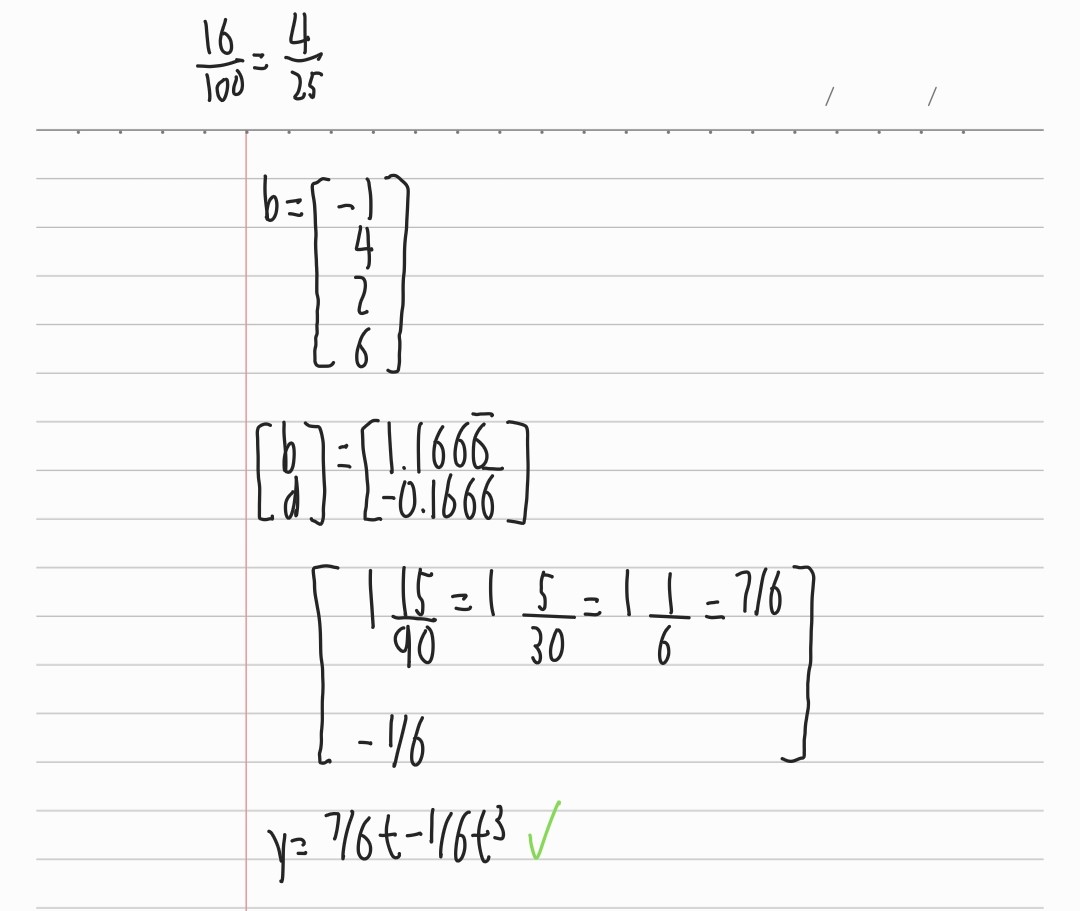 16/100 = 4/25
/ /
b = [-1
4
2
6]
[b
d] = [1.1666̅
-0.1666]
[1 15/90 = 1 5/30 = 1 1/6 = 7/6
-1/6]
y = 7/6t - 1/6t³ ✓